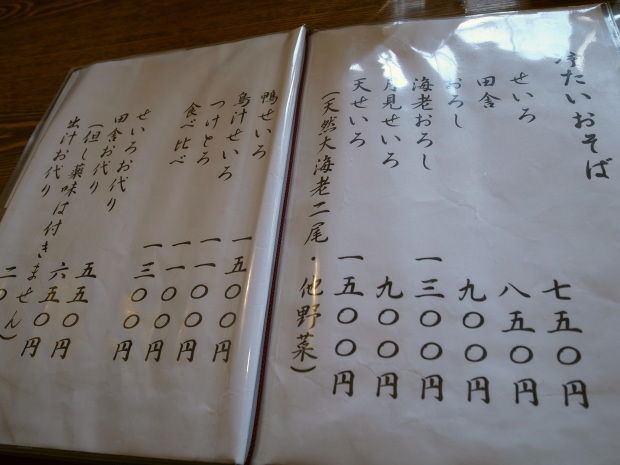 冷たいおそば
せいろ 七五〇円
田舎 八五〇円
おろし 九〇〇円
海老おろし 一三〇〇円
月見せいろ 九〇〇円
天せいろ 一五〇〇円
(天然大海老二尾・他野菜)
鴨せいろ 一五〇〇円
鳥汁せいろ 一一〇〇円
つけとろ 一一〇〇円
食べ比べ 一三〇〇円
せいろお代り 五五〇円
田舎お代り 六五〇円
(但し薬味は付きません)
出汁お代り 二〇